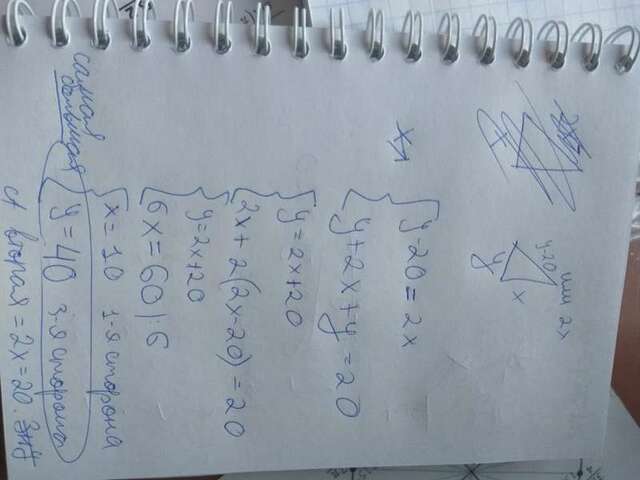 y-20 или 2x
y
x
{ y-20=2x
y+2x+y=20
{ y=2x+20
2x+2(2x-20)=20
{ y=2x+20
6x=60|:6
{ x=10 1-я сторона
y=40 3-я сторона
самая большая
А вторая =2x=20.